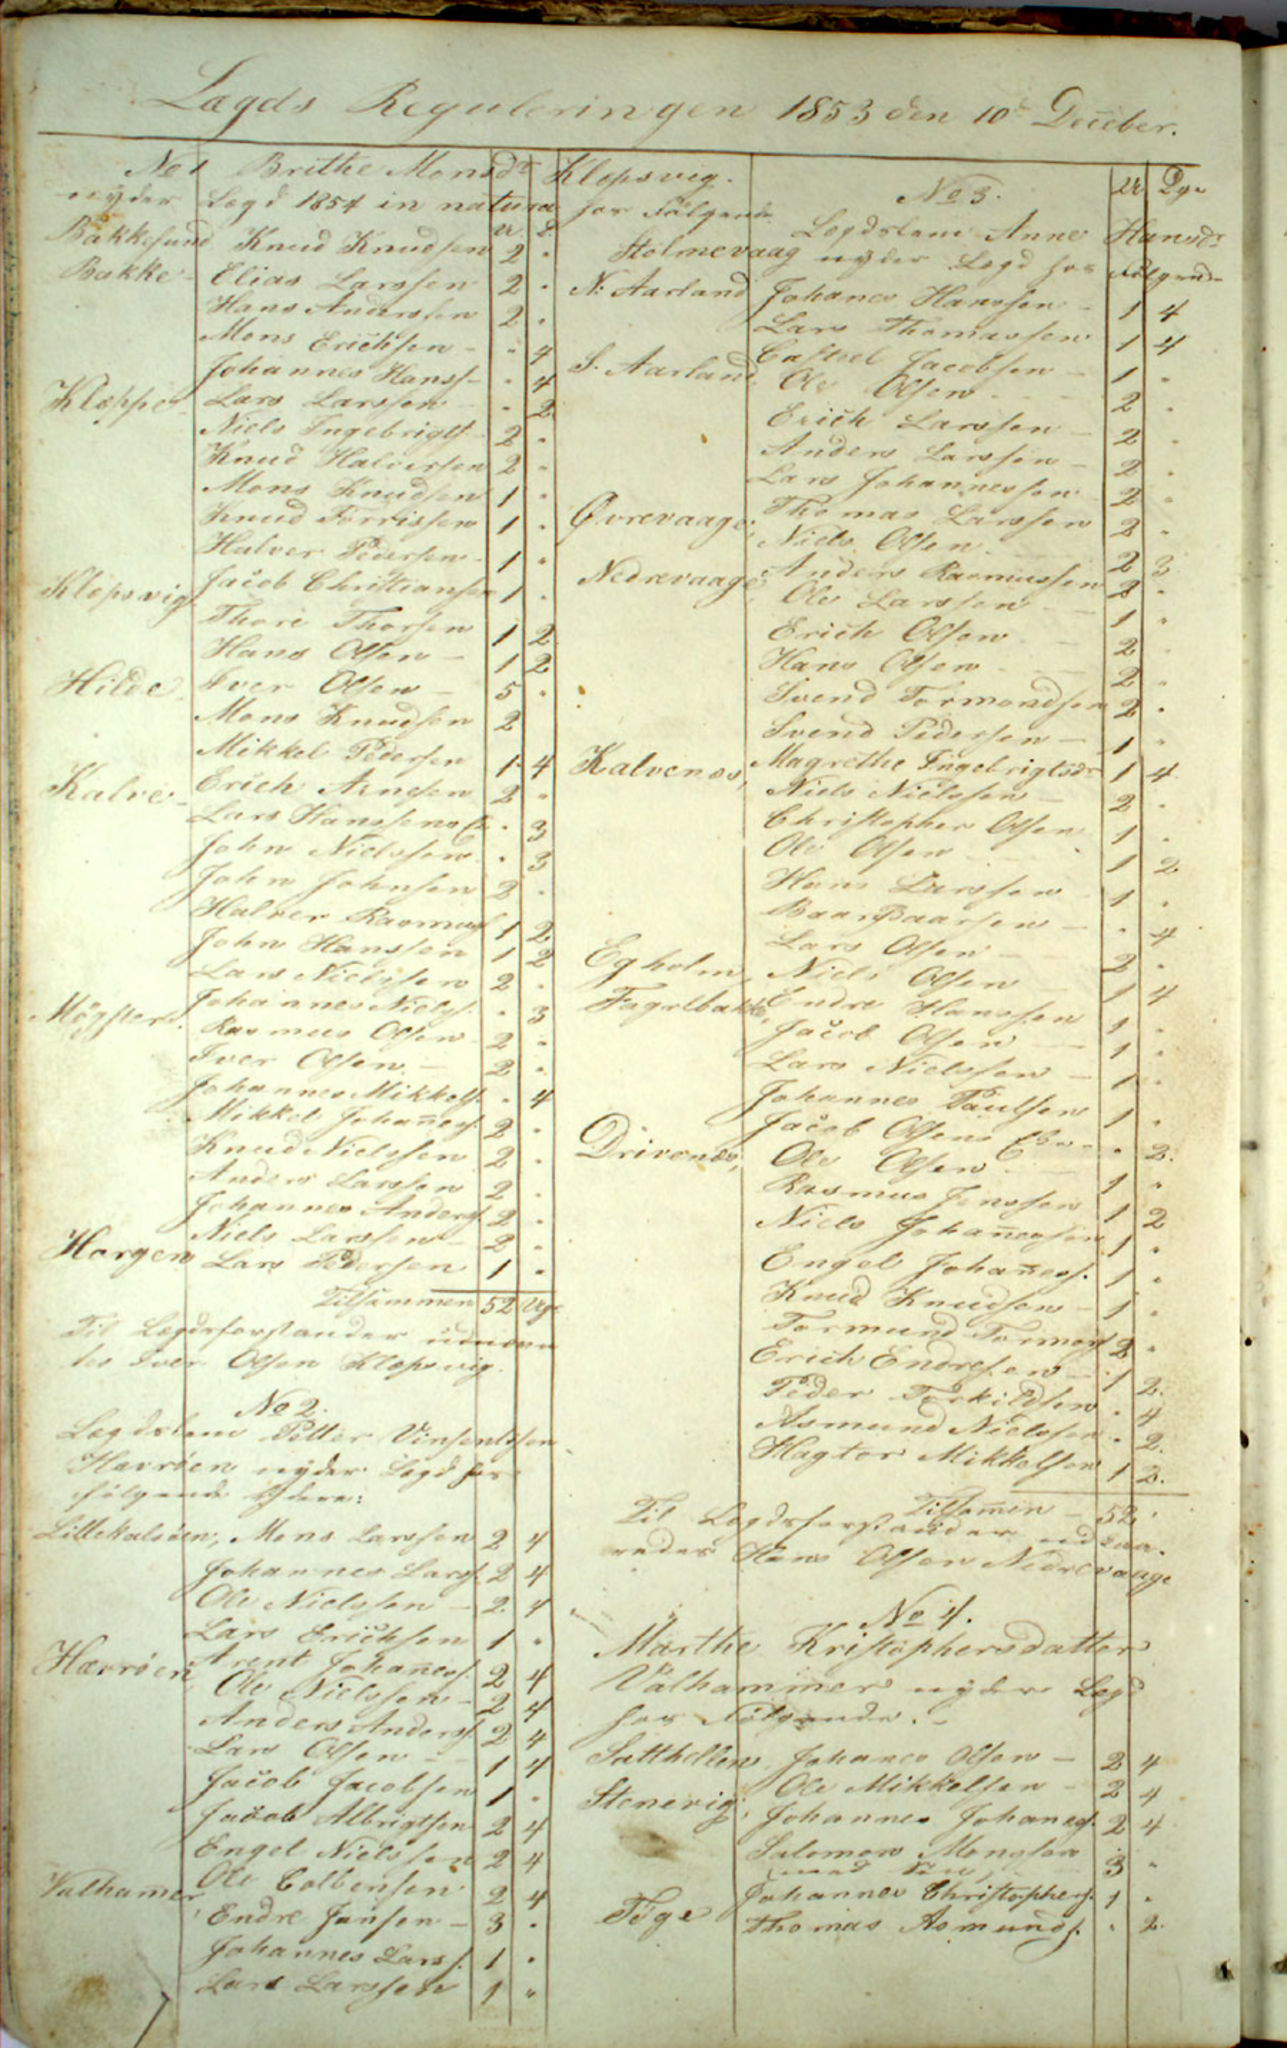 Lægds Reguleringen 1853 den 10de Decēber.
No 1 Brithe Monsdr Klepsvig.
nyder Lægd 1854 in natura hos Fölgende
U. D.
Bakkesund Knud Knudsen 2 "
Bakke Elias Larssen 2 "
Hans Anderssen 2 "
Mons Erichsen - " 4
Johannes Hanss. - " 4
Kleppe Lars Larssen - " 2
Niels Ingebrigts. 2 "
Knud Halversen 2 "
Mons Knudsen 1 "
Knud Torrissen 1 "
Halver Pedersen 1 "
Klepsvig Jacob Christiansen 1 "
Thore Thorsen 1 2
Hans Olsen - 1 2
Hilde Iver Olsen - 5 "
Mons Knudsen 2
Mikkel Pedersen 1 4
Kalve Erich Arnesen 2 "
Lars Hanssens E. " 3
John Nielssen " 3
John Johnsen 2 "
Halver Rasmus. 1 2
John Hanssen 1 2
Lars Nielssen 2 "
Møgster. Johannes Niels. " 3
Rasmus Olsen 2 "
Iver Olsen - 2 "
Johannes Mikkels. " 4
Mikkel Johañes. 2 "
Knud Nielssen 2 "
Anders Larssen 2 "
Johannes Anders. 2 "
Niels Larssen 2 "
Horgen Lars Pedersen 1 "
Tilsammen 52 Uge
Til Lægdsforstander udnævn
tes Iver Olsen Klepsvig.
No 2.
Lægdslem Petter Vinsentssen
Hevröen nyder Lægd hos
fölgende Ydere:
Littlekalsöen, Mons Larssen 2 4
Johannes Larss. 2 4
Ole Nielssen - 2 4
Lars Erichsen 1 "
Hevröen Arent Johañess. 2 4
Ole Nielssen - 2 4
Anders Anderss. 2 4
Lars Olsen - 1 4
Jacob Jacobsen 1 "
Jacob Albrigtsen 2 4
Engel Nielssen 2 4
Valhamer Ole Colbensen 2 4
Endre Jansen - 3 "
Johannes Larss. 1 "
Lars Larssen 1 "
No 3. U. Dge
Lægdslem Anne Hansdr
Stolmevaag nyder Lægd hos Fölgende
N. Aarland Johanes Hanssen - 1 4
Lars Thomassen 1 4
S. Aarland Casteel Jacobsen - 1 "
Ole Olsen - 2 "
Erich Larssen - 2 "
Anders Larssen - 2 "
Lars Johannessen 2 "
Øvrevaage, Thomas Larssen 2 "
Niels Olsen - 2 3
Nedrevaage Anders Rasmussen 2 "
Ole Larssen - 1 "
Erich Olsen - 2 "
Hans Olsen - 2 "
Svend Tormondsen 2 "
Svend Pedersen - 1 "
Kalvenes, Magrethe Ingebrigtsdr 1 4
Niels Nielssen - 2 "
Christopher Olsen 1 "
Ole Olsen 1 2
Hans Larssen 1 "
Baar Baarsen - " 4
Lars Olsen - 2 "
Egholm, Niels Olsen 1 4
Fagelbakke, Endre Hanssen 1 "
Jacob Olsen - 1 "
Lars Nielssen - 1 "
Johannes Paulsen 1 "
Jacob Olsens Eke - " 2.
Drivenes, Ole Olsen - 1 "
Rasmus Jenssen 1 2
Niels Johañessen 1 "
Engel Johañess. 1 "
Knud Knudsen - 1 "
Tormund Tormods. 2 "
Erich Endresen - 1 2.
Peder Torkildsen " 4
Asmund Nielssen " 2.
Hagtor Mikkelsen 1 2.
Tilsamen - 52 "
Til Lægdsforstander
Hans Olsen Nedrevaage
No 4.
Marthe Kristophersdatter
Valhammer nyder Lægd
hos Fölgende. -
Satthellen Johanes Olsen - 2 4
Ole Mikkelsen - 2 4
Stenevig, Johannes Johanes. 2 4
Salomon Mongsen
med Sön, - 3 "
Johannes Christophers. 1 "
Töge Thomas Asmunds. " 2.